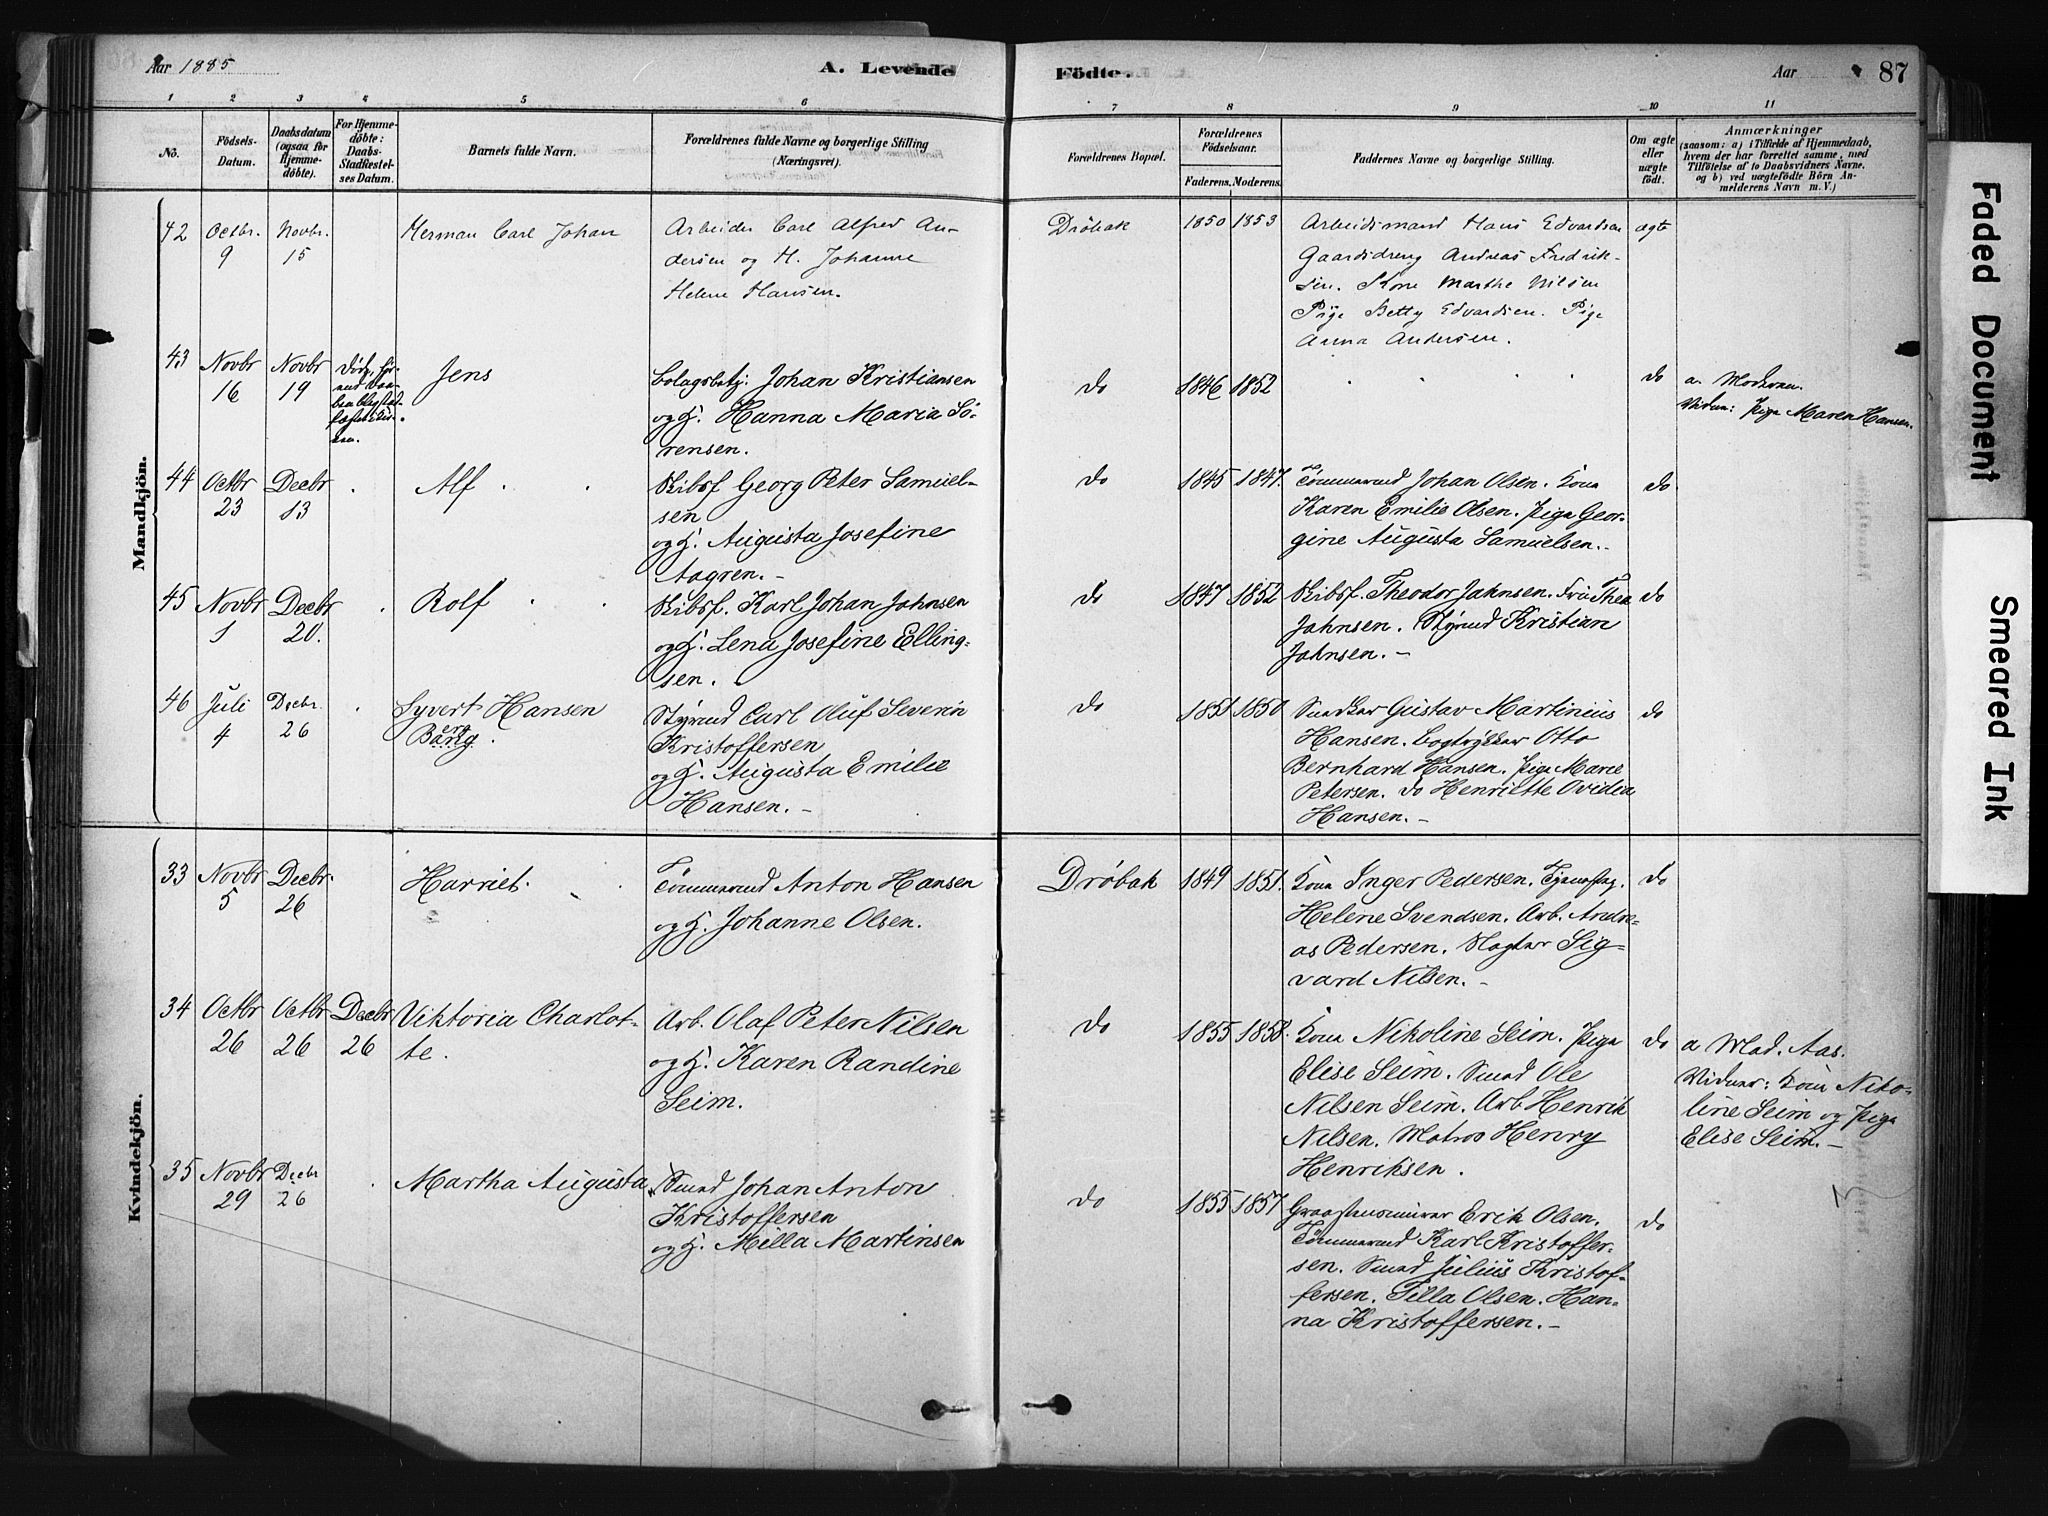 Aar 1885
A. Levende
Födte.
Aar
87
1 2 3 4 5 6 7 8 9 10 11
No.
Födsels-
Datum.
Daabsdatum
(ogsaa for
Hjemme-
döbte).
For Hjemme-
döbte:
Daabs-
Stadfæstel-
ses Datum.
Barnets fulde Navn.
Forældrenes fulde Navne og borgerlige Stilling
(Næringsvei).
Forældrenes Bopæl.
Forældrenes
Födselsaar.
Faderens. Moderens.
Faddernes Navne og borgerlige Stilling.
Om ægte
eller
uægte
födt.
Anmærkninger
(saasom: a) i Tilfælde af Hjemmedaab,
hvem der har forrettet samme, med
Tilföielse af to Daabsvidners Navne.
og b) ved uægtefödte Börn An-
melderens Navn m. V.)
Mandkjön.
42
Octbr.
9
Novbr.
15
Herman Carl Johan
Arbeider Carl Alfred An-
dersen og H. Johanne
Helene Hansen.
Dröbak
1850 1853
Arbeidsmand Hans Edvardsen
Gaardsdreng Andreas Fredrik-
sen. Kone Marthe Nilsen
Pige Betty Edvardsen. Pige
Anna Andersen.
ægte
43
Novbr
16
Novbr
19
Jens
Johan Kristiansen
og H. Hanna Maria Sö-
rensen.
do
1846 1852
do
a. Moderen.
Vidner: Pige Maren Hansen.
44
Octbr
23
Decbr
13
Alf
Skibsf Georg Peter Samuel-
sen
og H. Augusta Josefine
Aagren.-
do
1845 1847.
Tömmermd Johan Olsen. Kone
Karen Emilie Olsen. Pige Geor-
gine Augusta Samuelsen.-
do
45
Novbr
1
Decbr
20.
Rolf
Skibsf. Karl Johan Jahnsen
og H. Lena Josefine Elling-
sen.
do
1847 1852
Skibsf. Theodor Jahnsen. Fru Thea
Jahnsen. Styrmd Kristian
Jahnsen.-
do
46
Juli
4
Decbr.
26
Syvert Hansen
Berg.
Styrmd Carl Oluf Severin
Kristoffersen
og H. Augusta Emilie
Hansen.-
do
1851 1850
Snedker Gustav Martinius
Hansen. Bogtrykker Otto
Bernhard Hansen. Pige Marie
Petersen. do Henriette Ovidia
Hansen.-
do
Kvindekjön.
33
Novbr
5
Decbr.
26
Harriet.
Tömmermd Anton Hansen
og H. Johanne Olsen.
Dröbak
1849 1851.
Kone Inger Pedersen.
Helene Svendsen. Arb. Andre-
as Pedersen. Slagter Sig-
vard Nilsen.-
do
34
Octbr
26
Octbr
26
Decbr
26
Viktoria Charlot-
te.
Arb. Olaf Peter Nilsen
og H. Karen Randine
Seim.
do
1855 1858.
Kone Nikoline Seim. Pige
Elise Seim. Smed Ole
Nilsen Seim. Arb Henrik
Nilsen. Matros Henry
Henriksen.
do
a Mad. Aas.
Vidner: Kone Niko-
line Seim og Pige
Elise Seim.-
35
Novbr
29
Decbr
26
Martha Augusta
Smed Johan Anton
Kristoffersen
og H. Milla Martinsen
do
1855 1857
Graastensmurer Erik Olsen.
Tömmermd Karl Kristoffer-
sen. Smed Julius Kristof-
fersen. Tilla Olsen. Han-
na Kristoffersen.-
do
Faded Document
Smeared Ink